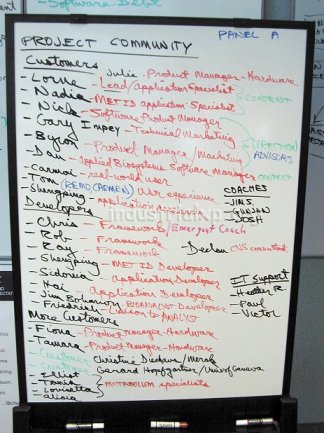 Software Debt
PANEL A
PROJECT COMMUNITY
Customers
Julie - Product Manager - Hardware
- Lorne - Lead/application Specialist
- Nadia - MET ID application Specialist
CONTENT
- Nick - Software Product Manager
- Gary Impey - Technical Marketing
- Byron - Product Manager/Marketing
DIRECTION
ADVISORS
- Dan - Applied Biosystems Software Manager
- Carmai - real-world user
CONTENT
- Tom (REMO CARMEN) U.I. experience
- Shengping - application
COACHES
- JIM S.
- GUNJAN
- JOSH
Developers
industrialxp
- Chris - Framework/Emergent Coach
- Rob - Framework
- Ray - Framework
Declan
CNS
- Shenping - MET ID Developer
- Sidonia - application Developer
- Hai - application Developer
- Jim Bohannon BIOANALYST Developer
- Liaison to ANALYST
IT Support
- Heather R.
- Paul
- Victor
More Customers
- Fiona - Product Manager - Hardware
- Tamara - Product Manager - Hardware
Customer
Christine / Merck
Customer
Gerard Hopfgartner/Univ of Geneva
- Elliot
- Tania
- METABOLISM specialists
- Loviette
- alicia